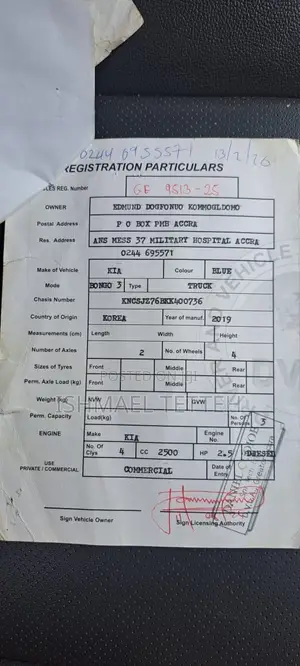 0244 695571 13/2/26
REGISTRATION PARTICULARS
LES REG. Number GE 9513-25
OWNER EDMUND DOGFONUO KOMMOGLDOMO
Postal Address P O BOX PMB ACCRA
Res. Address ANS MESS 37 MILITARY HOSPITAL ACCRA
0244 695571
Make of Vehicle KIA Colour BLUE
Mode BONGO 3 Type TRUCK
Chassis Number KNCSJZ76BKK400736
Country of Origin KOREA Year of manuf. 2019
Measurements (cm) Length Width Height
Number of Axles 2 No. of Wheels 4
Sizes of Tyres Front Middle Rear
Perm. Axle Load (kg) Front Middle Rear
POSTED ON
Weight (kg) NVW GVW
ISHMAEL TETTEH
Perm. Capacity Load(kg) No. Of Persons 3
ENGINE Make KIA Engine No.
No. Of Clys 4 CC 2500 HP 2.5 DIESEL
USE PRIVATE / COMMERCIAL COMMERCIAL Date of Entry
Sign Vehicle Owner Sign Licensing Authority